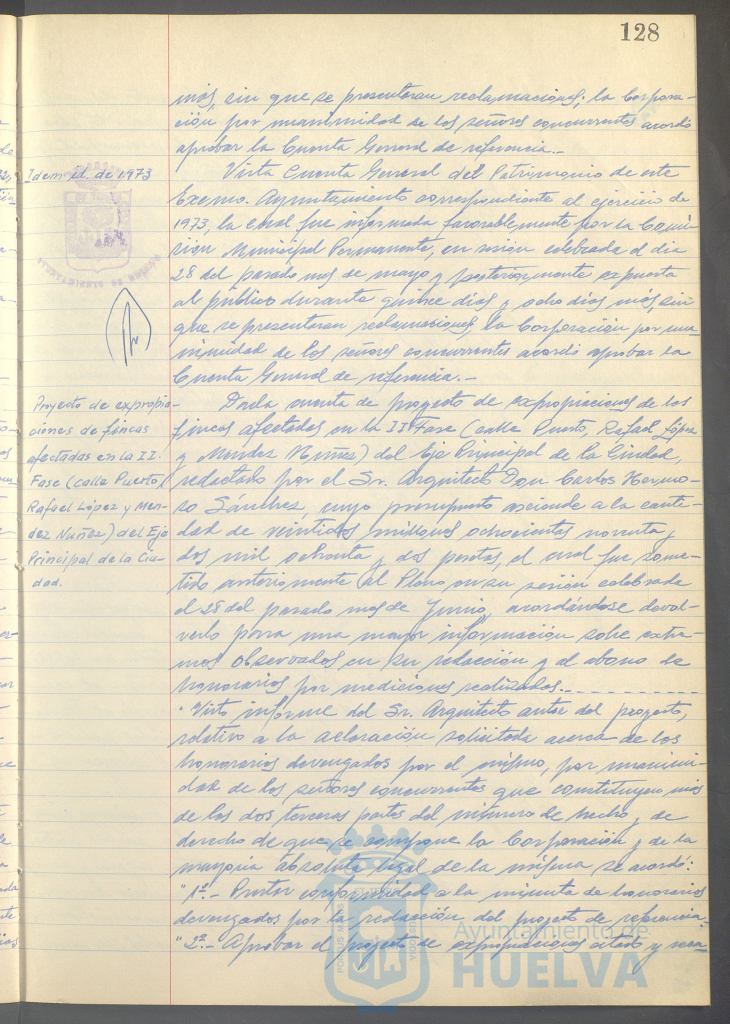 128
más, sin que se presentaran reclamaciones; la Corpora-
ción por unanimidad de los señores concurrentes acordó
aprobar la Cuenta General de referencia.-
Idem id. de 1973
Vista Cuenta General del Patrimonio de este
Excmo. Ayuntamiento correspondiente al ejercicio de
1973, la cual fue informada favorablemente por la Comi-
sión Municipal Permanente, en sesión celebrada el dia
28 del pasado mes de mayo y posteriormente expuesta
al público durante quince días y ocho días más, sin
que se presentaran reclamaciones, la Corporación por una-
nimidad de los señores concurrentes acordó aprobar la
Cuenta General de referencia.-
Proyecto de expropia-
ciones de fincas
afectadas en la II.
Fase (calle Puerto,
Rafael López y Men-
dez Nuñez) del Eje
Principal de la Ciu-
dad.
Dada cuenta de proyecto de expropiaciones de las
fincas afectadas en la II Fase (calle Puerto, Rafael López
y Mendez Nuñez) del Eje Principal de la Ciudad,
redactado por el Sr. Arquitecto Don Carlos Hermo-
so Sánchez, cuyo presupuesto asciende a la canti-
dad de veintidos millones ochocientas noventa y
dos mil ochenta y dos pesetas, el cual fue some-
tido anteriormente al Pleno en su sesión celebrada
el 28 del pasado mes de Junio, acordándose devol-
verlo para una mayor información sobre extre-
mos observados en su redacción y al abono de
honorarios por mediciones realizadas.-
"Visto informe del Sr. Arquitecto autor del proyecto,
relativo a la aclaración solicitada acerca de los
honorarios devengados por el mismo, por unanimi-
dad de los señores concurrentes que constituyen más
de las dos terceras partes del número de hecho y de
derecho de que se compone la Corporación y de la
mayoria absoluta legal de la misma se acordó:
"1º.- Prestar conformidad a la minuta de honorarios
devengados por la redacción del proyecto de referencia.
"2º.- Aprobar el proyecto de expropiaciones citado y
Ayuntamiento de
HUELVA